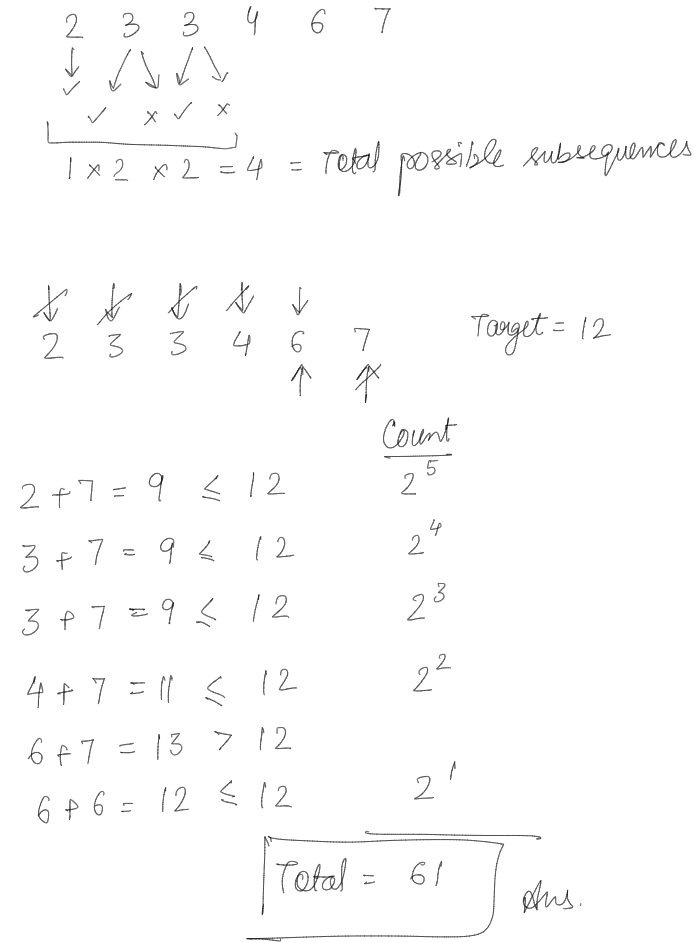 2 3 3 4 6 7
↓ ↙ ↘ ↙ ↘
✓ ✓ × ✓ ×
1 × 2 × 2 = 4 = Total possible subsequences
2 3 3 4 6 7 Target = 12
Count
2 + 7 = 9 ≤ 12 2^5
3 + 7 = 9 ≤ 12 2^4
3 + 7 = 9 ≤ 12 2^3
4 + 7 = 11 ≤ 12 2^2
6 + 7 = 13 > 12
6 + 6 = 12 ≤ 12 2^1
Total = 61 Ans.